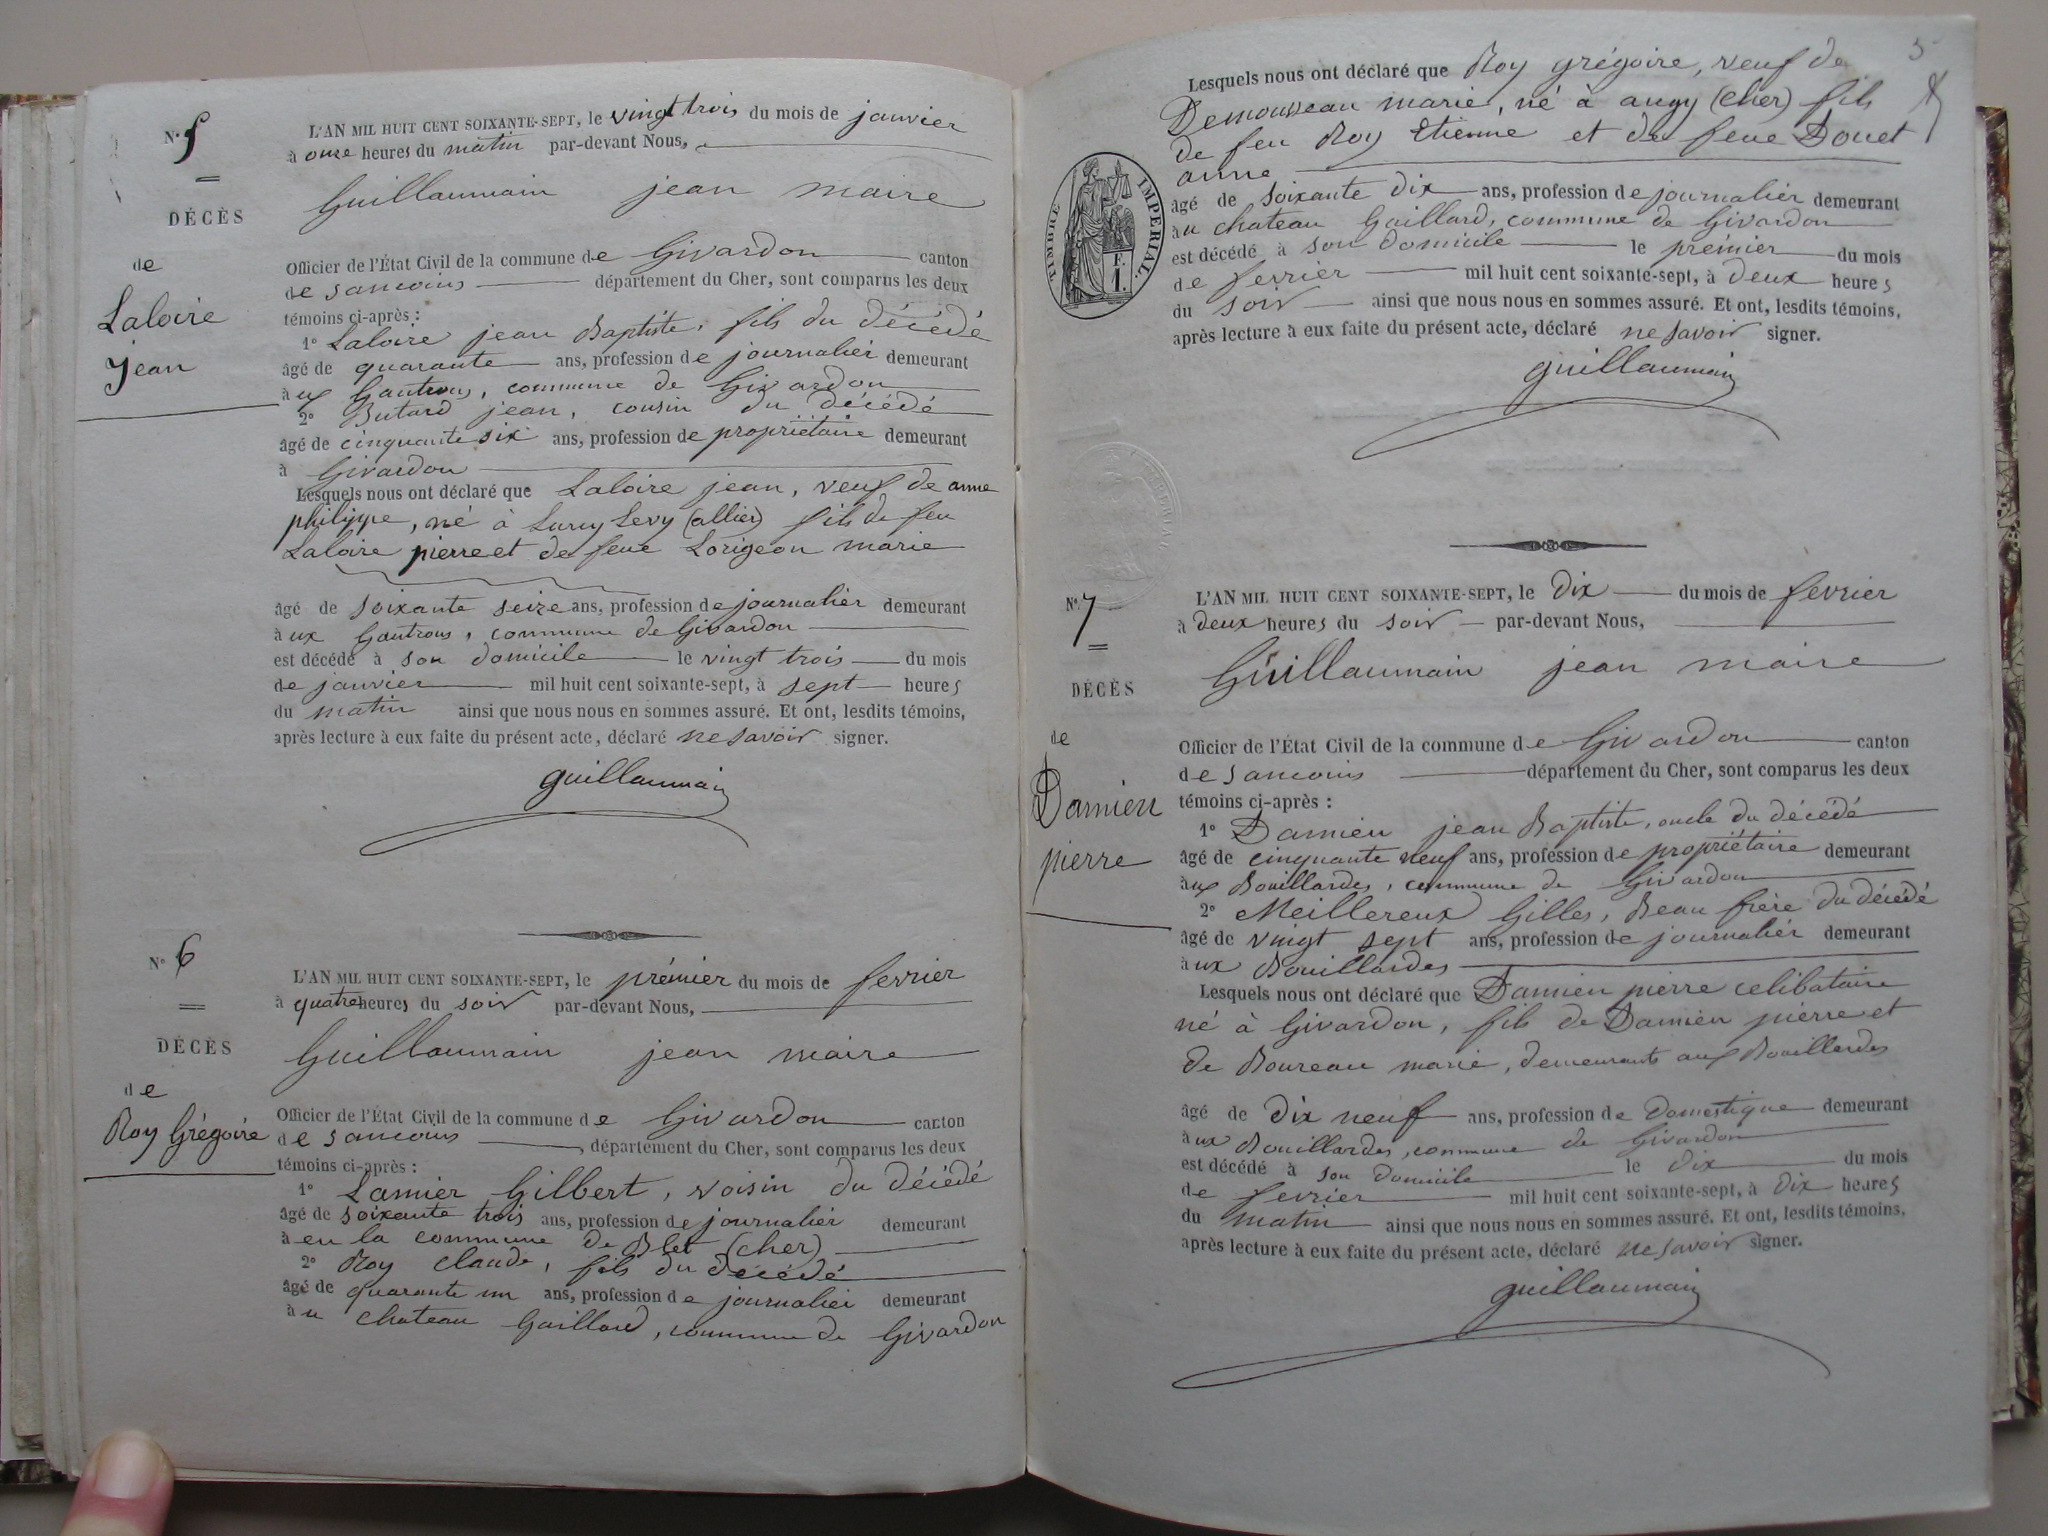 N° 5
DÉCÈS
de
Laloire
jean
L'AN MIL HUIT CENT SOIXANTE-SEPT, le vingt trois du mois de janvier
à onze heures du matin par-devant Nous,
Guillaumain jean maire
Officier de l'État Civil de la commune de Givardon canton
de Sancoins département du Cher, sont comparus les deux
témoins ci-après :
1° Laloire jean Baptiste, fils du décédé
âgé de quarante ans, profession de journalier demeurant
aux Gautrons, commune de Givardon
2° Butard jean, cousin du décédé
âgé de cinquante six ans, profession de propriétaire demeurant
à Givardon
Lesquels nous ont déclaré que Laloire jean, veuf de anne
philippe, né à Lurcy Levy (allier) fils de feu
Laloire pierre et de feue Lorigeon marie
âgé de soixante seize ans, profession de journalier demeurant
aux Gautrons, commune de Givardon
est décédé à son domicile le vingt trois du mois
de janvier mil huit cent soixante-sept, à sept heures
du matin ainsi que nous nous en sommes assuré. Et ont, lesdits témoins,
après lecture à eux faite du présent acte, déclaré ne savoir signer.
guillaumain
N° 6
DÉCÈS
de
Roy Grégoire
L'AN MIL HUIT CENT SOIXANTE-SEPT, le prémier du mois de fevrier
à quatre heures du soir par-devant Nous,
Guillaumain jean maire
Officier de l'État Civil de la commune de Givardon canton
de Sancoins, département du Cher, sont comparus les deux
témoins ci-après :
1° Lamier Gilbert, voisin du décédé
âgé de soixante trois ans, profession de journalier demeurant
à en la commune de Blet (cher)
2° Roy claude, fils du décédé
âgé de quarante un ans, profession de journalier demeurant
au chateau Gaillard, commune de Givardon
5
Lesquels nous ont déclaré que Roy grégoire, veuf de
Demousseau marie, né à augy (cher) fils
de feu Roy Etienne et de feue Douet
anne
TIMBRE IMPERIAL.
F.
1.
âgé de soixante dix ans, profession de journalier demeurant
au chateau Gaillard, commune de Givardon
est décédé à son domicile le prémier du mois
de fevrier mil huit cent soixante-sept, à deux heures
du soir ainsi que nous nous en sommes assuré. Et ont, lesdits témoins,
après lecture à eux faite du présent acte, déclaré ne savoir signer.
guillaumain
N° 7
DÉCÈS
de
Damien
pierre
L'AN MIL HUIT CENT SOIXANTE-SEPT, le dix du mois de fevrier
à deux heures du soir par-devant Nous,
Guillaumain jean maire
Officier de l'État Civil de la commune de Givardon canton
de Sancoins département du Cher, sont comparus les deux
témoins ci-après :
1° Damien jean Baptiste, oncle du décédé
âgé de cinquante neuf ans, profession de propriétaire demeurant
aux Bouillardes, commune de Givardon
2° Meillereux Gilles, Beau frère du décédé
âgé de vingt sept ans, profession de journalier demeurant
aux Bouillardes
Lesquels nous ont déclaré que Damien pierre celibataire
né à Givardon, fils de Damien pierre et
de Boureau marie, demeurants aux Bouillardes
âgé de dix neuf ans, profession de Domestique demeurant
aux Bouillardes, commune de Givardon
est décédé à son domicile le dix du mois
de fevrier mil huit cent soixante-sept, à dix heures
du matin ainsi que nous nous en sommes assuré. Et ont, lesdits témoins,
après lecture à eux faite du présent acte, déclaré ne savoir signer.
guillaumain